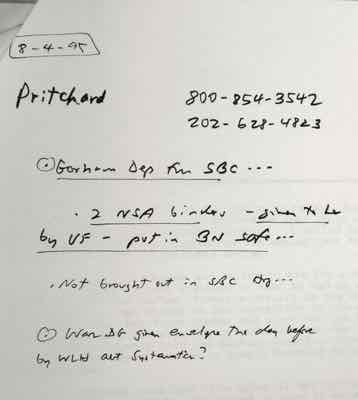 8-4-95
Pritchard 800-854-3542
202-628-4823
⊙ Gorham Dep fm SBC ...
· 2 NSA binders - given to her
by VF - put in BN safe ...
· Not brought out in SBC Hrg ...
⊙ Was DG given envelope the day before
by WLH Systematics?